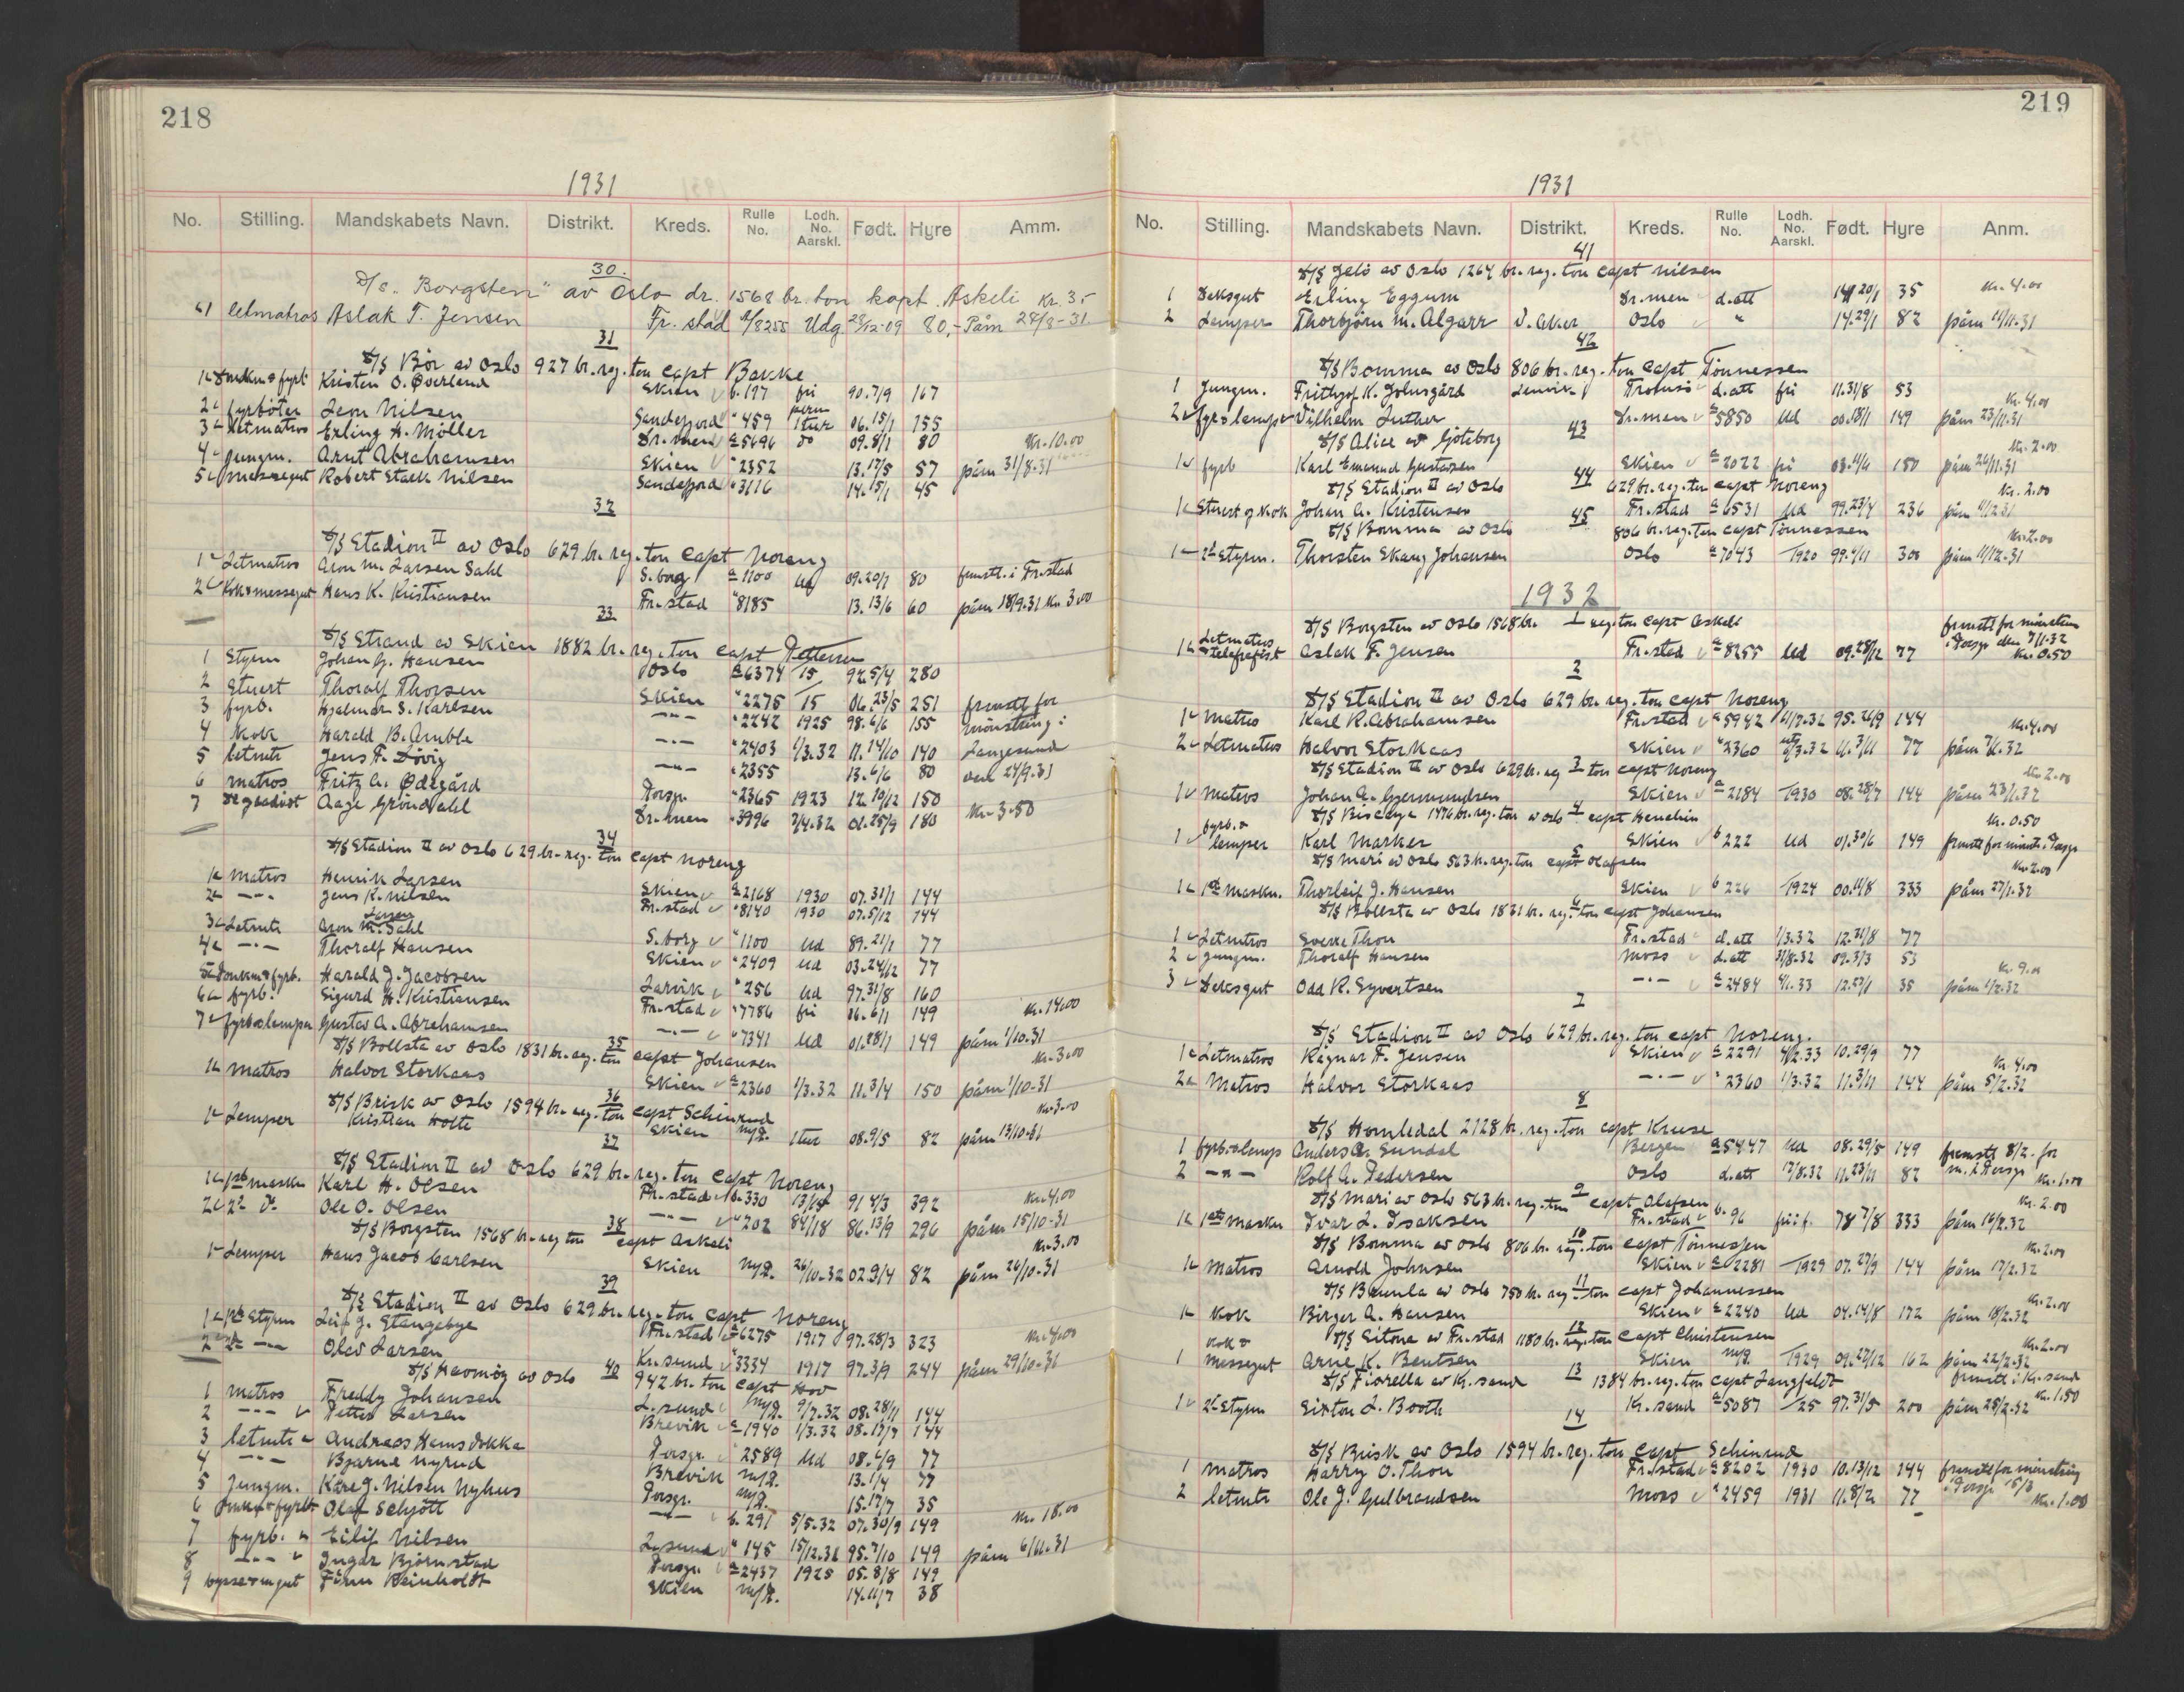 218
1931
No. Stilling. Mandskabets Navn. Distrikt. Kreds. Rulle No. Lodh. No. Aarskl. Født. Hyre Amm.
30.
D/s. "Borgsten" av Oslo dr. 1568 br. ton kapt. Askeli Kr. 3.-
1 letmatros Aslak F. Jensen Fr.stad a/8255 Udg 28/12-09 80,- Påm 28/8-31.
31
D/S Bör av Oslo 927 br. reg. ton capt Bakke
1 Donkm & fyrb Kristen O. Överland Skien b. 197 fri 90.7/9 167
2 fyrböter Leon Nilsen Sandefjord " 459 1tur 06.15/1 155
3 Letmatros Erling H. Möller Dr.men a 5696 do 09.8/1 80 Kr. 10.00
4 jungm. Arnt Abrahamsen Skien " 2352 13.17/5 57 påm 31/8-31
5 messegut Robert Stack Nilsen Sandefjord " 3116 14.15/1 45
32
D/S Stadion II av Oslo 629 br. reg. ton capt Noreng
1 Letmatros Aron M. Larsen Dahl S.borg a 1100 Ud 09.20/7 80 fremst. i Fr.stad
2 Kok & messegut Hans K. Kristiansen Fr.stad " 8185 13.13/6 60 påm 18/9.31 Kr. 3.00
33
D/S Strand av Skien 1882 br. reg. ton capt Pettersen
1 Styrm Johan G. Hansen Oslo a 6374 15 92.5/4 280
2 Stuert Thoralf Thorsen Skien " 2275 15 06.25/5 251 fremst for
3 fyrb. Hjalmar S. Karlsen —"— " 2242 1925 98.6/6 155 mönstring i
4 Kok Harald B. Amble —"— " 2403 1/3.32 11.14/10 140 Langesund
5 letmtr Jens F. Lövig —"— " 2355 13.6/6 80 den 24/9.31
6 matros Fritz A. Ödegård Porsgr. " 2365 1923 12.19/12 150
7 Aage Gröndahl Dr.men " 3996 3/4.32 01.25/9 180 Kr. 3.50
34
D/S Stadion II av Oslo 629 br. reg. ton capt Noreng
1 matros Henrik Larsen Skien a 2168 1930 07.31/1 144
2 —"— Jens K. Nilsen Fr.stad " 8140 1930 07.5/12 144
3 Letmtr Aron M. Larsen Dahl S.borg " 1100 Ud 89.21/1 77
4 —"— Thoralf Hansen Skien " 2409 Ud 03.24/12 77
5 Donkm & fyrb. Harald J. Jacobsen Larvik " 256 Ud 97.31/8 160
6 fyrb. Sigurd H. Kristiansen Fr.stad " 7786 fri 06.6/1 149 Kr. 14.00
7 fyrb & lemper Gustav A. Abrahamsen —"— " 7341 Ud 01.28/1 149 påm 1/10.31
35
D/S Bollsta av Oslo 1831 br. reg. ton capt Johansen Kr. 3.00
1 matros Halvor Storkaas Skien a 2360 1/3.32 11.3/4 150 påm 1/10-31
36
D/S Brisk av Oslo 1594 br. reg. ton capt Schinrud Kr. 3.00
1 Lemper Kristian Holte Skien my/2. 1tur 08.9/5 82 påm 13/10-31
37
D/S Stadion II av Oslo 629 br. reg. ton capt Noreng
1 1ste maskn Karl H. Olsen Fr.stad b. 330 13/15 91 4/3 392 Kr. 4.00
2 2d do Ole O. Olsen —"— " 202 84/18 86.13/9 296 påm 15/10-31
38
D/S Borgsten 1568 br. reg ton capt Askeli Kr. 3.00
1 Lemper Hans Jacob Carlsen Skien my/2. 26/10.32 02.9/4 82 påm 26/10-31
39
D/S Stadion II av Oslo 629 br. reg. ton capt Noreng
1 1ste Styrm Leif J. Stangebye Fr.stad a 6275 1917 97.28/3 323 Kr. 4.00
2 2d —"— Olav Larsen Kr.sund " 3334 1917 97.3/9 244 påm 29/10-31
40
D/S Havmöy av Oslo 942 br. ton capt Hov
1 matros Freddy Johansen L.sund my/2. 9/7.32 08.28/11 144
2 —"— Petter Larsen Brevik a 1940 1/3.32 08.17/7 144
3 letmtr Andreas Hansdokka Porsgr. " 2589 Ud 08.4/9 77
4 —"— Bjarne Nyrud Brevik my/2. 13.1/4 77
5 Jungm. Kåre J. Nilsen Nyhus Porsgr. my/2. 15.17/7 35
6 Donkm & fyrb Olaf Schjött —"— b. 291 5/5.32 07.30/9 149 Kr. 18.00
7 fyrb. Eilif Nilsen L.sund " 145 15/12.31 95.7/10 149 påm 6/11.31
8 —"— Ingar Björnstad Porsgr. a 2437 1925 05.8/8 149
9 bysse & mgut Finn Reinholdt Skien my/2. 14.11/7 38
219
1931
No. Stilling. Mandskabets Navn. Distrikt. Kreds. Rulle No. Lodh. No. Aarskl. Født. Hyre Anm.
41
D/S Jelö av Oslo 1264 br. reg. ton capt Nilsen
1 Deksgut Erling Eggum Dr.men d.att 14.20/1 35 Kr. 4.00
2 Lemper Thorbjörn M. Algarr V. Aker Oslo " 14.29/1 82 påm 11/11.31
42
D/S Bomma av Oslo 806 br. reg. ton capt Tönnessen
1 Jungm. Frithjof K. Johnsgård Lenvik Tromsö d.att fri 11.31/8 53 Kr. 4.00
2 fyr & lemper Vilhelm Luther Dr.men a 5850 Ud 00.18/1 149 påm 23/11.31
43
D/S Alice av Göteborg Kr. 2.00
1 fyrb Karl Emanuel Gustavsen Skien a 2022 fri 03.4/6 150 påm 26/11.31
44
D/S Stadion II av Oslo 629 br. reg. ton capt Noreng Kr. 2.00
1 Stuert og Kok Johan A. Kristensen Fr.stad a 6531 Ud 99.23/4 236 påm 11/12.31
45
D/S Bomma av Oslo 806 br. reg. ton capt Tönnessen Kr. 2.00
1 2d Styrm. Thorsten Skaug Johansen Oslo a 7043 1920 99.4/11 300 påm 11/12.31
1932
1
D/S Borgsten av Oslo 1568 br. reg. ton capt Askeli fremst for mönstring
1 Letmatros & telegrafist Aslak F. Jensen Fr.stad a 8255 Ud 09.28/12 77 i Porsgr den 7/1.32 Kr. 0.50
2
D/S Stadion II av Oslo 629 br. reg. ton capt Noreng
1 Matros Karl R. Abrahamsen Fr.stad a 5942 11/7.32 95.26/9 144 Kr. 4.00
2 Letmatros Halvor Storkaas Skien " 2360 1/3.32 11.3/11 77 påm 7/1.32
3
D/S Stadion II av Oslo 629 br. reg ton capt Noreng Kr. 2.00
1 Matros Johan A. Gjermundsen Skien a 2184 1930 08.28/7 144 påm 23/1.32
4
D/S Biscaya 1476 br. reg. ton av Oslo capt Henchin Kr. 0.50
1 fyrb. & lemper Karl Marker Skien b 222 Ud 01.30/6 149 fremst for mönstr. i Porsgr
5
D/S Mari av Oslo 563 br. reg. ton capt Olafsen Kr. 2.00
1 1ste Maskn. Thorleif J. Hansen Skien b 226 1924 00.11/8 333 påm 27/1.32
6
D/S Bollsta av Oslo 1831 br. reg. ton capt Johansen
1 Letmtros Sverre Thon Fr.stad d.att 1/3.32 12.31/8 77
2 jungm. Thoralf Hansen Moss d.att 31/8.32 09.3/3 53 Kr. 9.00
3 Deksgut Odd R. Syvertsen —"— a 2484 4/1.33 12.27/1 35 påm 1/2.32
7
D/S Stadion II av Oslo 629 br. reg. ton capt Noreng.
1 Letmatros Ragnar F. Jensen Skien a 2291 4/2.33 10.29/9 77 Kr. 4.00
2 Matros Halvor Storkaas —"— " 2360 1/3.32 11.3/11 144 påm 5/2.32
8
D/S Hornledal 2128 br. reg. ton capt Kruse
1 fyrb & lemp Anders A. Sundal Bergen a 5447 Ud 08.29/5 149 fremst 8/2. for
2 —"— Rolf A. Pedersen Oslo d.att 17/8.32 11.23/11 82 m. i Porsgr. Kr. 1.00
9
D/S Mari av Oslo 563 br. reg. ton capt Olafsen Kr. 2.00
1 1ste Maskn Ivar L. Isaksen Fr.stad b. 96 fri f. 78 7/8 333 påm 16/2.32
10
D/S Bomma av Oslo 806 br. reg. ton capt Tönnessen Kr. 2.00
1 Matros Arnold Johnsen Skien a 2281 1929 07.27/9 144 påm 17/2.32
11
D/S Bamla av Oslo 750 br. reg. ton capt Johannessen Kr. 2.00
1 Kok Birger A. Hansen Skien a 2240 Ud 04.14/8 172 påm 18/2.32
12
D/S Sitona av Fr.stad 1180 br. reg. ton capt Christensen Kr. 2.00
1 Kok & messegut Arne K. Bentsen Skien my/2. 1929 09.27/12 162 påm 22/2.32
13
D/S Fiorella av Kr.sand 1384 br. reg. ton capt Langfeldt fremst i Kr.sand
1 2d Styrm Sixten L. Booth Kr.sand a 5087 /25 97.31/5 200 påm 25/2.32 Kr. 1.50
14
D/S Brisk av Oslo 1594 br. reg. ton capt Schinrud
1 Matros Harry O. Thon Fr.stad a 8202 1930 10.13/12 144 fremst for mönstring
2 letmtr Ole J. Gulbrandsen Moss " 2459 1931 11.8/2 77 i Porsgr 15/3 Kr. 1.00